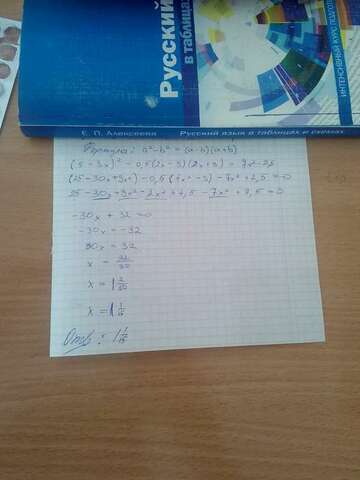 Русский
в таблицах
ИНТЕНСИВНЫЙ КУРС ПОДГОТО
Е. П. Алексеева Русский язык в таблицах и схемах
Формула: a²-b² = (a-b)(a+b)
(5-3x)² - 0,5(2x-3)(2x+3) = 7x²-2,5
(25-30x+9x²) - 0,5(4x²-9) - 7x²+2,5=0
25-30x+9x²-2x²+4,5-7x²+2,5=0
-30x+32=0
-30x=-32
30x=32
x = 32/30
x = 1 2/30
x = 1 1/15
Отв: 1 1/15